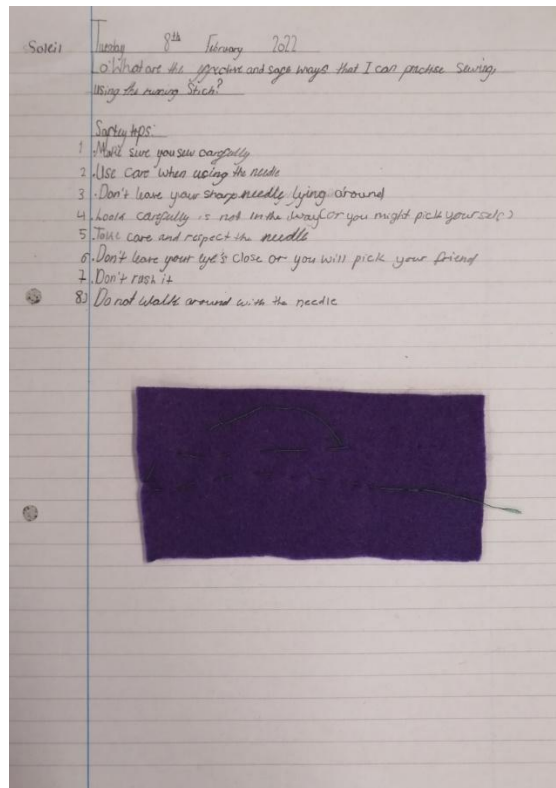 Soleil
Tuesday 8th February 2022
Lo: What are the effective and safe ways that I can practise Sewing,
using the running Stich?
Saftey tips:
1 .Make sure you sew carefully
2 .Use care when using the needle
3 .Don't leave your sharp needle lying around
4 .Look carefully is not in the (way or you might pick yourself)
5 .Take care and respect the needle
6 .Don't leave your eye's close or you will pick your friend
7 .Don't rush it
8) Do not walk around with the needle